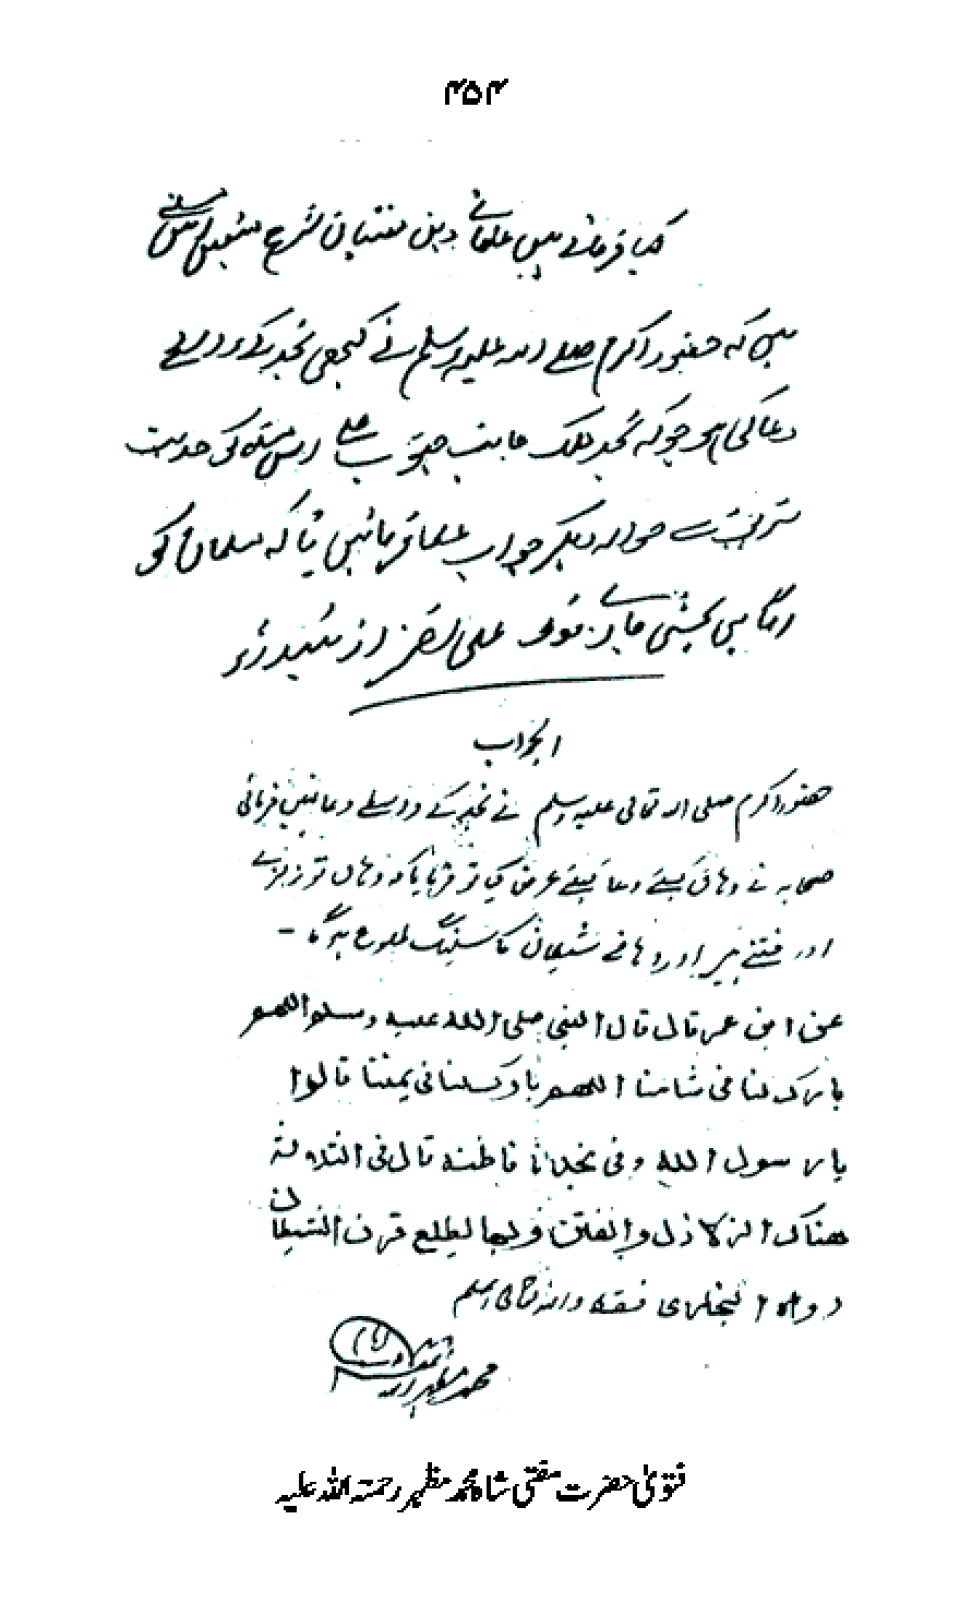 ۴۵۴
کیا فرماتے ہیں علمائے دین مفتیان شرع متین اس مسئلے
میں کہ حضور اکرم صلے اللہ علیہ وسلم نے کبھی نجد کے واسطے
دعا کی ہو جو کہ نجد ملک جانب جنوب ہے اس مسئلہ کی حدیث
شریف سے حوالہ دیکر جواب عطا فرمائیں تاکہ مسلمان کو
آگاہی بخشی جاوے۔ فقط علی از
الجواب
حضور اکرم صلی اللہ تعالی علیہ وسلم نے نجد کے واسطے دعا نہیں فرمائی
صحابہ نے وہاں کیلئے دعا کیلئے عرض کیا تو فرمایا کہ وہاں تو زلزلے
اور فتنے ہیں اور وہاں سے شیطان کا سینگ طلوع ہوگا ۔
عن ابن عمر قال قال النبی صلی اللہ علیہ وسلم اللھم
بارک لنا فی شامنا اللھم بارک لنا فی یمننا قالوا
یا رسول اللہ وفی نجدنا فاظنہ قال فی الثالثۃ
ھناک الزلازل والفتن وبھا یطلع قرن الشیطان
رواہ البخاری فقط واللہ تعالی اعلم
محمد مظہر اللہ
فتویٰ حضرت مفتی شاہ محمد مظہر رحمتہ اللہ علیہ